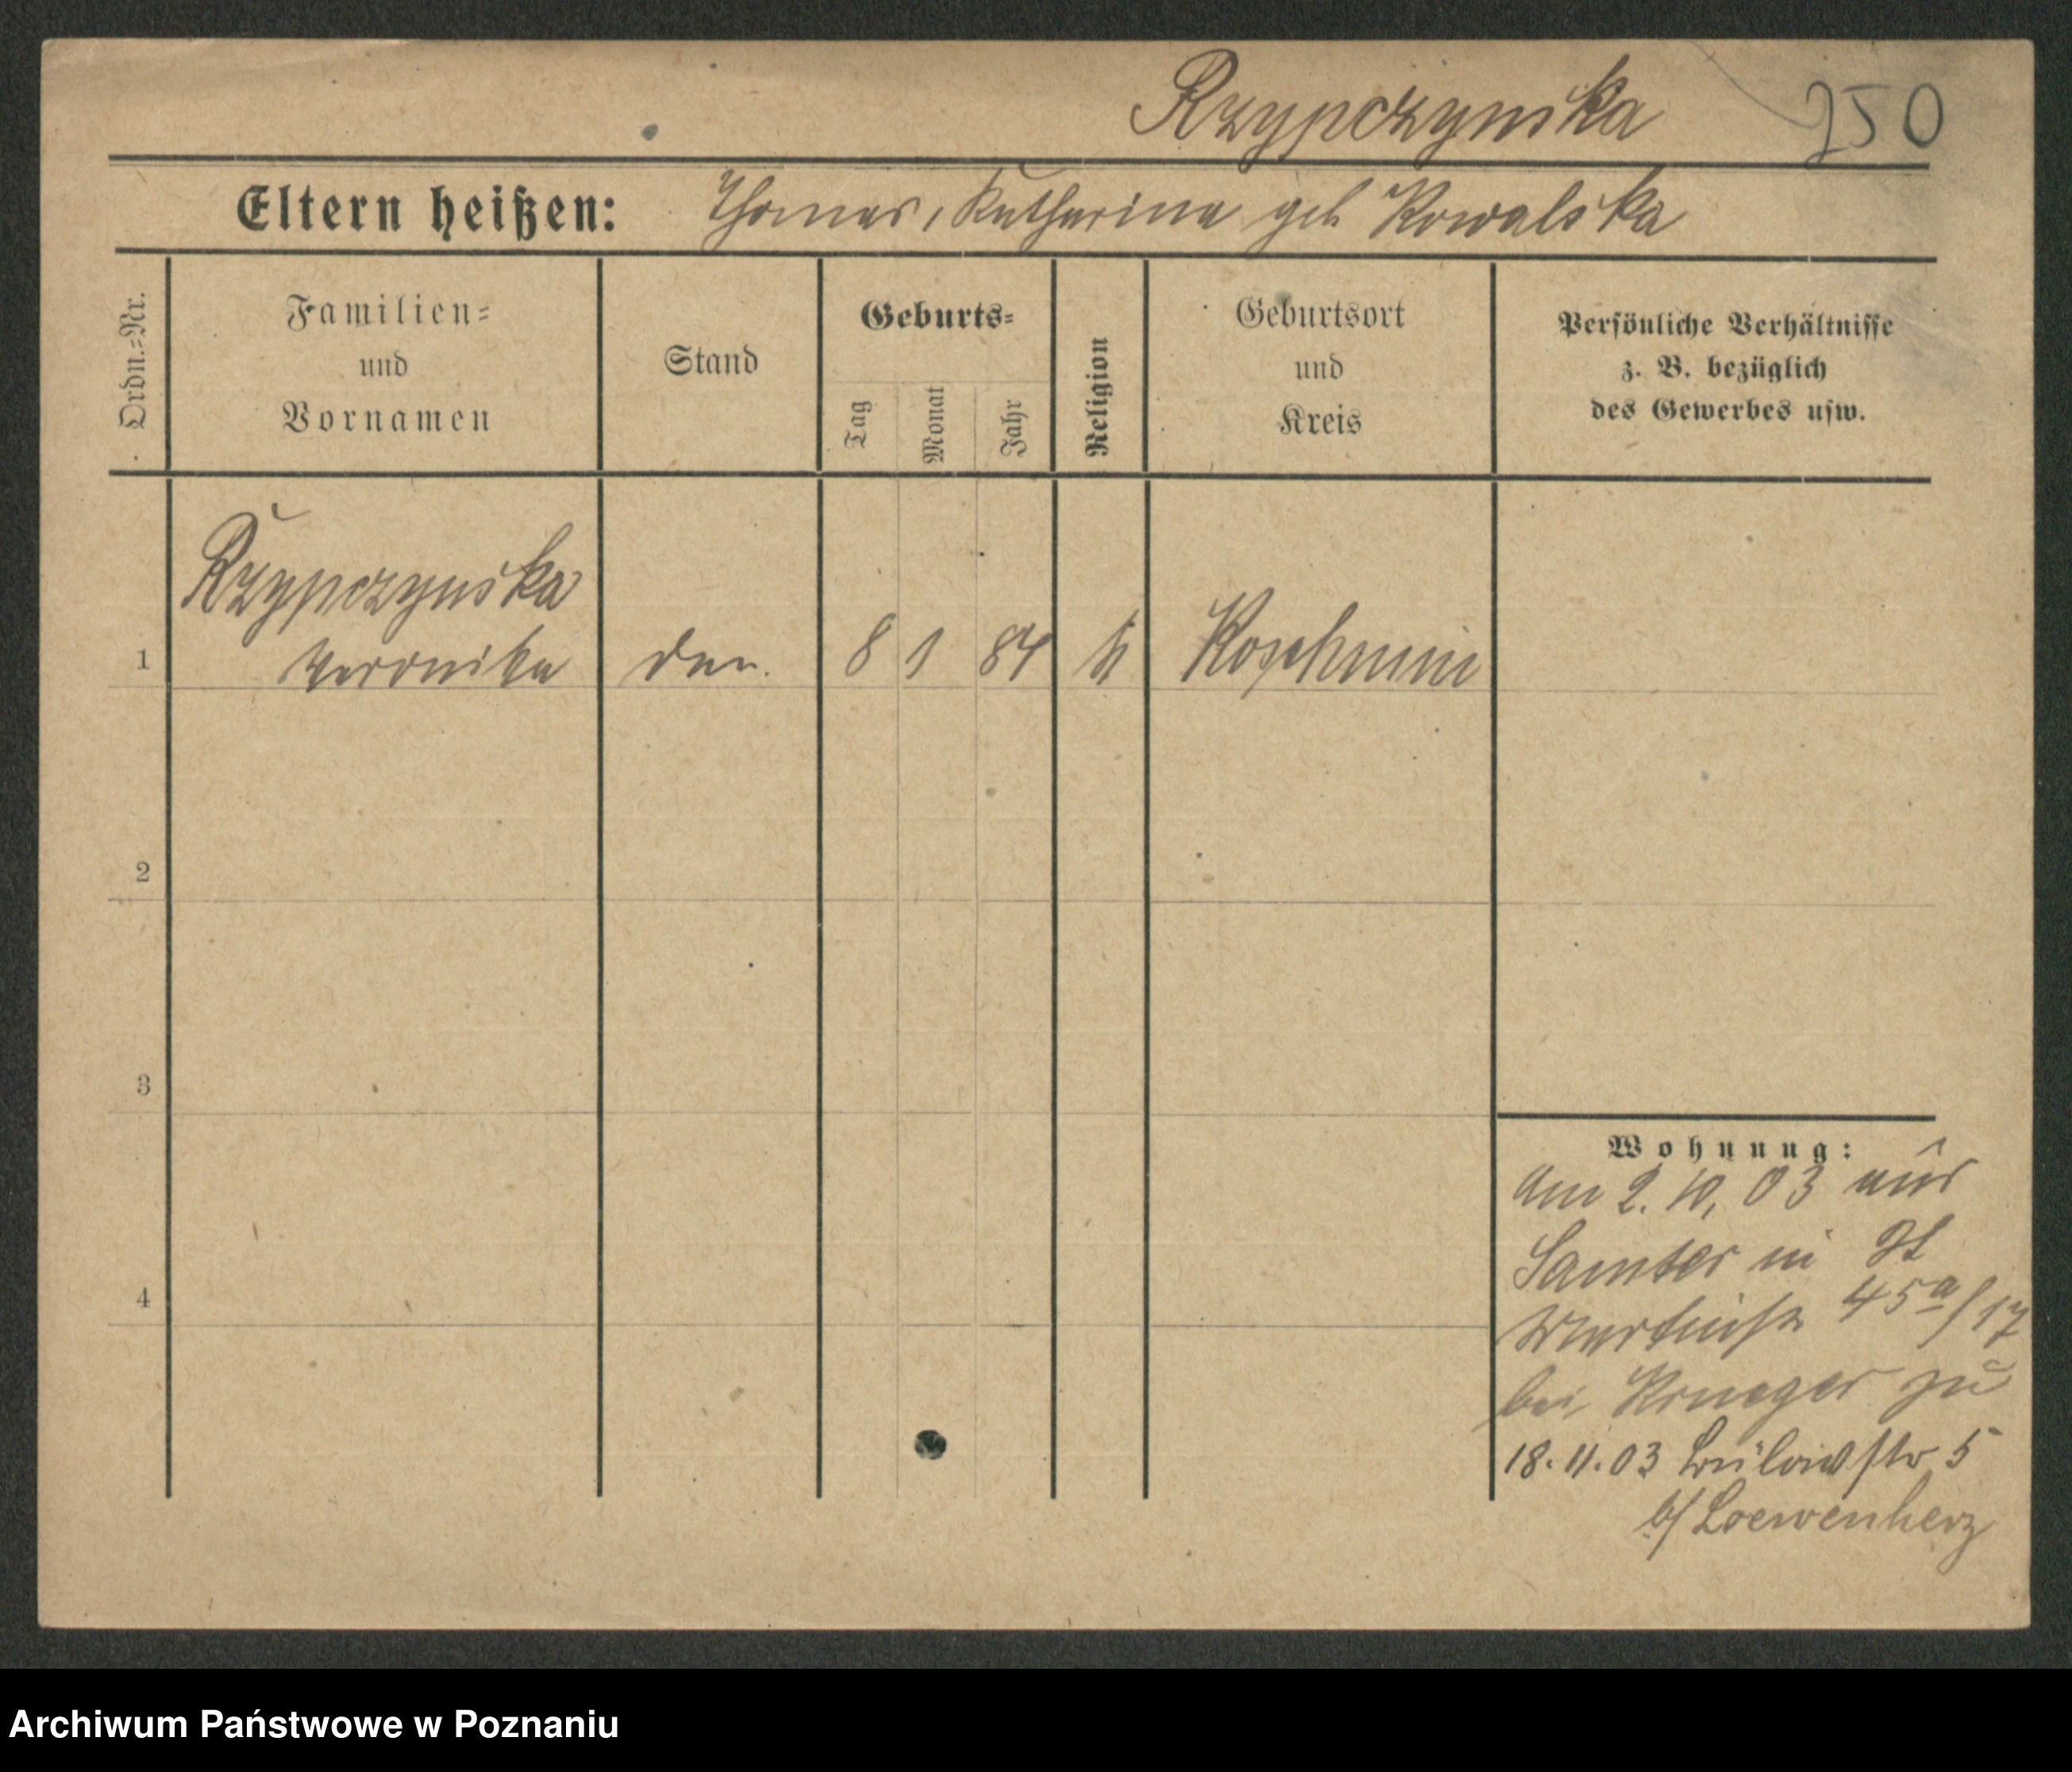 Rzypczynska 250
Eltern heißen: Thomas, Katharina geb Kowalska
Ordn.-Nr.
Familien-
und
Vornamen
Stand
Geburts-
Tag
Monat
Jahr
Religion
Geburtsort
und
Kreis
Persönliche Verhältnisse
z. B. bezüglich
des Gewerbes usw.
Rzypczynska
1 Veronika 8 1 84 k Koschmin
2
3
4
Wohnung:
Am 2. 10. 03 aus
Samter in St
45a/17
bei Krueger zu
18. 11. 03 Bülowstr 5
b/ Loewenherz
Archiwum Państwowe w Poznaniu